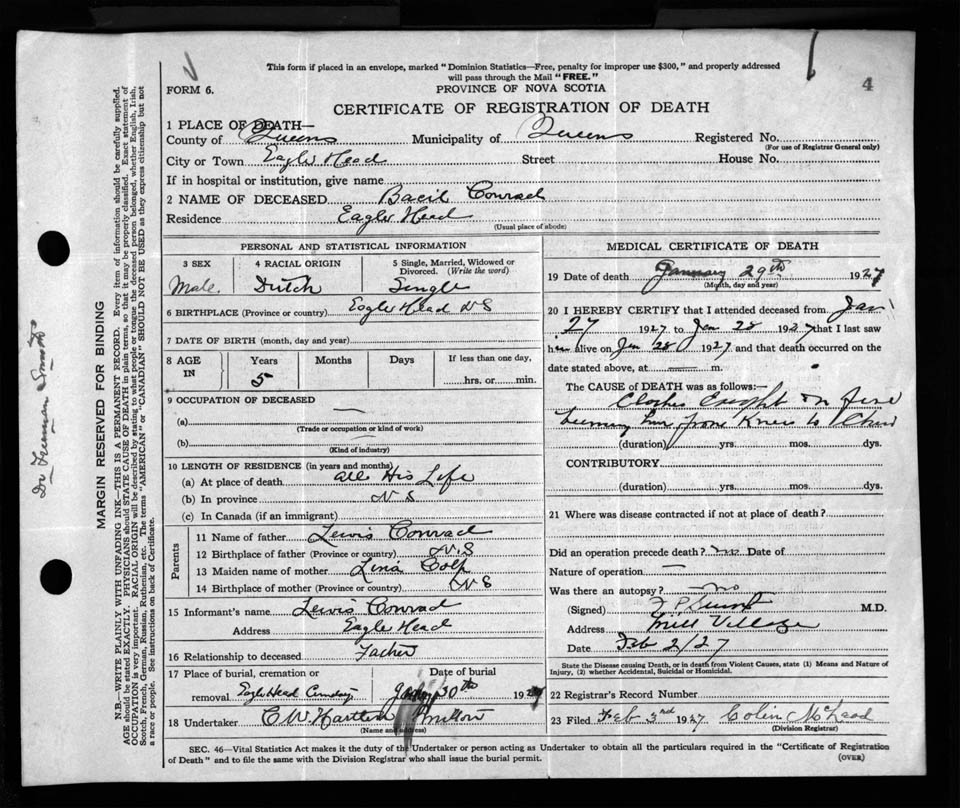 This form if placed in an envelope, marked "Dominion Statistics—Free, penalty for improper use $300," and properly addressed
will pass through the Mail "FREE."
4
FORM 6.
PROVINCE OF NOVA SCOTIA
CERTIFICATE OF REGISTRATION OF DEATH
1 PLACE OF DEATH—
County of Queens Municipality of Queens Registered No.
(For use of Registrar General only)
City or Town Eagle Head Street House No.
If in hospital or institution, give name
2 NAME OF DECEASED Bacil Conrad
Residence Eagle Head
(Usual place of abode)
PERSONAL AND STATISTICAL INFORMATION
3 SEX 4 RACIAL ORIGIN 5 Single, Married, Widowed or
Divorced. (Write the word)
Male. Dutch Single
6 BIRTHPLACE (Province or country) Eagle Head NS
7 DATE OF BIRTH (month, day and year)
8 AGE IN Years Months Days If less than one day,
5 hrs. or min.
9 OCCUPATION OF DECEASED
(a) —
(Trade or occupation or kind of work)
(b)
(Kind of industry)
10 LENGTH OF RESIDENCE (in years and months)
(a) At place of death all His Life
(b) In province N S
(c) In Canada (if an immigrant)
Parents
11 Name of father Lewis Conrad
12 Birthplace of father (Province or country) N.S
13 Maiden name of mother Lina Colp
14 Birthplace of mother (Province or country) N S
15 Informant's name Lewis Conrad
Address Eagle Head
16 Relationship to deceased Father
17 Place of burial, cremation or Date of burial
removal Eagle Head 30th 192
18 Undertaker C W Milton
(Name and address)
MEDICAL CERTIFICATE OF DEATH
19 Date of death January 29th 1927
(Month, day and year)
20 I HEREBY CERTIFY that I attended deceased from Jan
27 1927 to Jan 28 1927 that I last saw
him alive on Jan 28 1927 and that death occurred on the
date stated above, at — m.
The CAUSE OF DEATH was as follows:—
Clothes Caught on fire
burning him from Knees to Chin
(duration) yrs. mos. dys.
CONTRIBUTORY
(duration) yrs. mos. dys.
21 Where was disease contracted if not at place of death?
Did an operation precede death? no Date of
Nature of operation —
Was there an autopsy? no
(Signed) M.D.
Address Mill Village
Date Feb 2/27
State the Disease causing Death, or in death from Violent Causes, state (1) Means and Nature of
Injury, (2) whether Accidental, Suicidal or Homicidal.
22 Registrar's Record Number
23 Filed Feb 3rd 1927 Colin McLeod
(Division Registrar)
SEC. 46—Vital Statistics Act makes it the duty of the Undertaker or person acting as Undertaker to obtain all the particulars required in the "Certificate of Registration
of Death" and to file the same with the Division Registrar who shall issue the burial permit.
(OVER)
MARGIN RESERVED FOR BINDING
N.B.—WRITE PLAINLY WITH UNFADING INK—THIS IS A PERMANENT RECORD. Every item of information should be carefully supplied.
AGE should be stated EXACTLY. PHYSICIANS should STATE CAUSE OF DEATH in plain terms, so that it may be properly classified. Exact statement of
OCCUPATION is very important. RACIAL ORIGIN will be described by stating to what people or tongue the deceased person belonged, whether English, Irish,
Scotch, French, German, Russian, Ruthenian, etc. The terms "AMERICAN" or "CANADIAN" SHOULD NOT BE USED as they express citizenship but not
a race or people. See instructions on back of Certificate.
Dr Freeman Smith